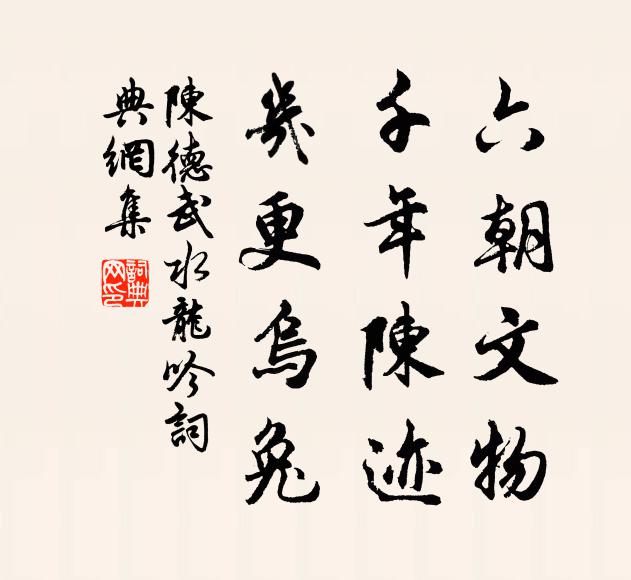 六朝文物
千年陳迹
幾更烏兔
陳德武水龍吟詞
典網集
詞典
网印